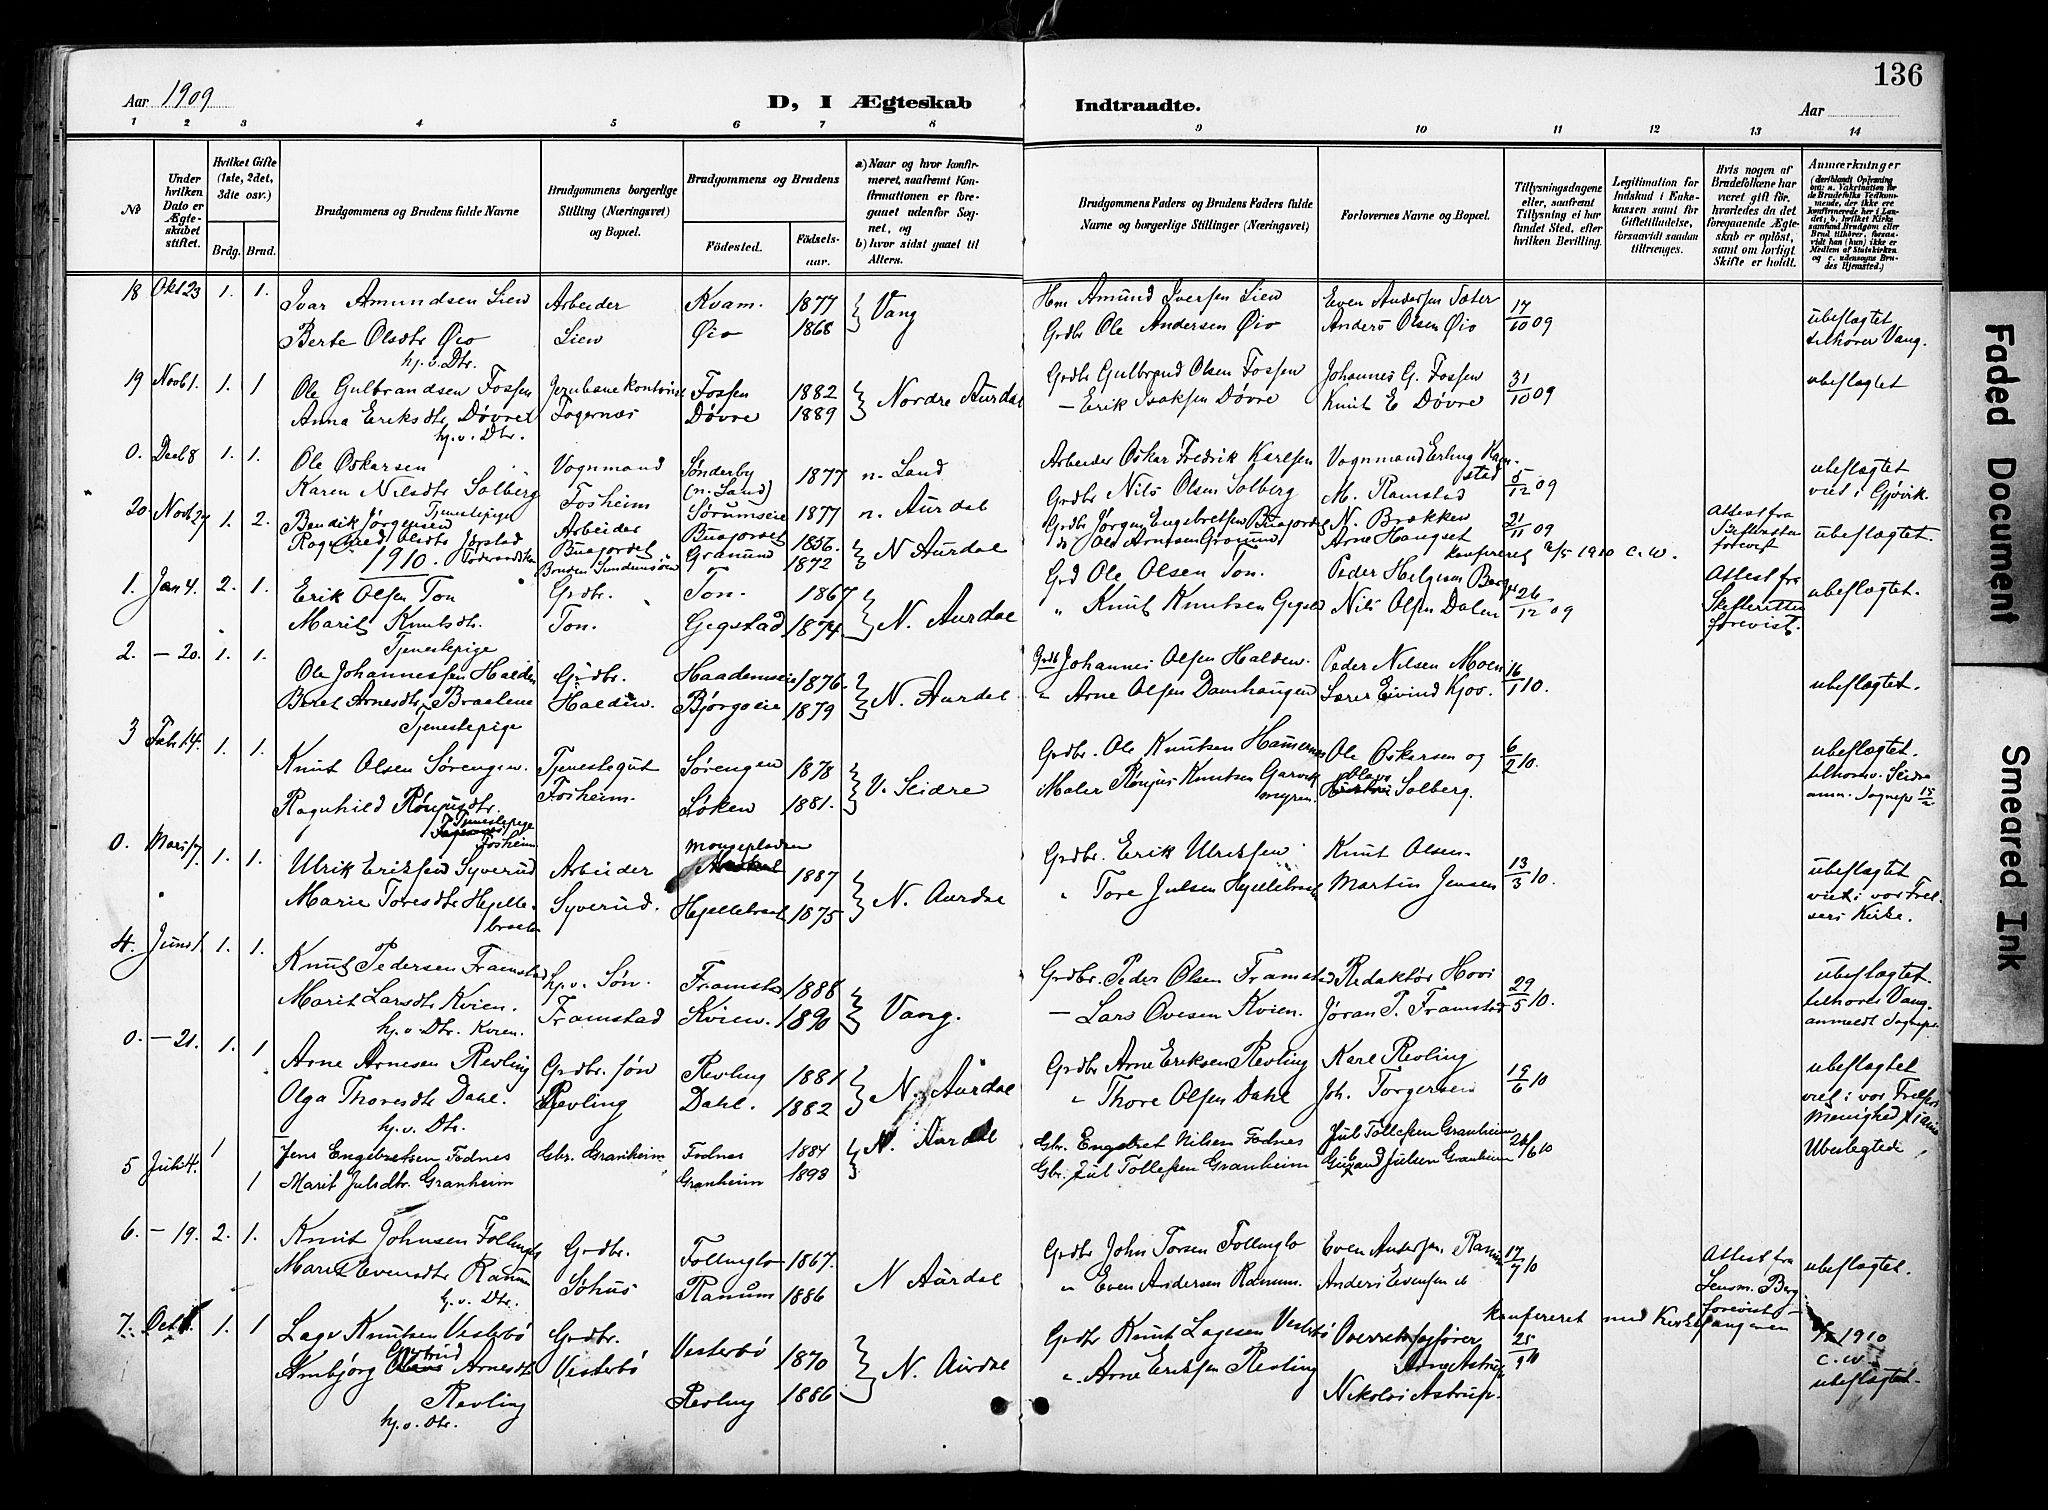 136
Aar 1909
D, I Ægteskab Indtraadte.
Aar
1 2 3 4 5 6 7 8 9 10 11 12 13 14
No
Under hvilken Dato er Ægteskabet stiftet.
Hvilket Gifte (1ste, 2det, 3die osv.)
Brdg. Brud.
Brudgommens og Brudens fulde Navne
Brudgommens borgerlige Stilling (Næringsvei) og Bopæl.
Brudgommens og Brudens
Fødested. Fødselsaar.
a) Naar og hvor konfirmeret, saafremt Konfirmationen er foregaaet udenfor Sognet, og
b) hvor sidst gaaet til Alters.
Brudgommens Faders og Brudens Faders fulde Navne og borgerlige Stillinger (Næringsvei)
Forlovernes Navne og Bopæl.
Tillysningsdagene eller, saafremt Tillysning ei har fundet Sted, efter hvilken Bevilling.
Legitimation for Indskud i Enkekassen samt for Giftetilladelse, forsaavidt saadan tiltrænges.
Hvis nogen af Brudefolkene har været gift før, hvorledes da det foregaaende Ægteskab er opløst, samt om lovligt Skifte er holdt.
Anmærkninger
18 Okt 23 1. 1. Ivar Amundsen Lien Arbeider Kvam. 1877 Vang Hm Amund Iversen Lien Even Andersen Sæter 17/10 09 ubeslægtet
Berte Olsdtr Øio Lien Øio 1868 Grdbr Ole Andersen Øio Anders Olsen Øio tilhører Vang.
hj. v. Dtr.
19 Novb 1. 1. 1 Ole Gulbrandsen Fossen Jernbanekontorist Fossen 1882 Nordre Aurdal Grdbr Gulbrand Olsen Fossen Johannes G. Fossen 31/10 09 ubeslægtet
Anna Eriksdtr Døvre Fagernæs Døvre 1889 — Erik Isaksen Døvre Knut E Døvre
hj. v. Dtr.
0. Decb 8 1. 1. Ole Oskarsen Vognmand Sønderby 1877 n. Land Arbeider Oskar Fredrik Karlsen Vognmand Erling Ramstad 5/12 09 ubeslægtet
Karen Nilsdtr Solberg Fosheim (n. Land) Grdbr Nils Olsen Solberg M. Ramstad viet i Gjøvik.
Tjenestepige Sørumseie 1877 n. Aurdal
20. Novb 27 1. 2. Bendik Jørgensen Arbeider Buajordet 1856. N Aurdal Grdbr Jørgen Engebretsen Buajordet N. Brækken 21/11 09 Attest fra ubeslægtet.
Ragnhild Olsdtr Buajordet Granund 1872 Arne Hougset Skifteretten forevist
1910. konfereret 2/5 1910 C. W.
1. Jan 4. 2. 1. Erik Olsen Ton Grdbr. Ton. 1867 N. Aurdal Grd Ole Olsen Ton. Peder Helgesen Berge 26/12 09 Attest fra ubeslægtet.
Marit Knutsdtr. Ton. Gigstad 1874 " Knut Knutsen Gigstad Nils Olsen Dalen Skifteretten forevist.
Tjenestepige
2. — 20. 1. 1. Ole Johannessen Halden Grdbr. Haademseie 1876. N. Aurdal Grdb Johannes Olsen Halden. Peder Nilsen Moen 16/1 10. ubeslægtet.
Beret Arnesdtr Braaten Halden. Bjørgoeie 1879 " Arne Olsen Damhaugen Lærer Eivind Kjos.
Tjenestepige
3 Febr 14. 1. 1. Knut Olsen Sørengen. Tjenestegut Sørengen 1878 V. Slidre Grdbr. Ole Knutsen Ole Oskarsen og 6/2 10. ubeslægtet.
Ragnhild Fosheim. Løken 1881. Maler Knutsen Garvikmyren. Solberg.
Tjenestepige Fosheim
0. Mars 17 1. 1. Ulrik Eriksen Syverud Arbeider 1887 N. Aurdal Grdbr. Erik Ulriksen Knut Olsen 13/3 10. ubeslægtet
Marie Toresdtr Hjellebraaten Syverud. Hjellebraat 1875 " Tore Julsen Hjellebraat Martin Jensen viet i vor Frelsers Kirke.
4. Juni 1. 1. 1. Knut Pedersen Framstad hj. v. Søn. Framstad 1888 Vang. Grdbr. Peder Olsen Framstad Redaktør Hovi 29/5 10. ubeslægtet.
Marit Larsdtr Kvien. Framstad Kvien. 1890 — Lars Ovesen Kvien. Jøran P. Framstad tilhører Vang
hj. v. Dtr. Kvien. anmeldt Sognepr.
0. — 21. 1. 1 Arne Arnesen Revling Grdbr. søn Revling 1881 N. Aurdal Grdbr Arne Eriksen Revling Karl Revling 19/6 10 ubeslægtet
Olga Thoresdtr Dahl. Revling Dahl. 1882 " Thore Olsen Dahl Joh. Torgersen viet i vor Frelsers Menighed
hj. v. Dtr.
5 Juli 4. 1 Jens Engebretsen Fodnes Gbr. Granheim Fodnes 1884 N. Aurdal Gbr. Engebret Nilsen Fodnes Jul Tollefsen Granheim 26/6 10 Ubeslegtede
1 Marit Julsdtr. Granheim Granheim 1893 Gbr. Jul Tollefsen Granheim Julsen Granheim
6. — 19. 2. 1. Knut Johnsen Follinglo Grdbr. Follinglo 1867. N Aurdal Grdbr John Torsen Follinglo Even Andersen Ranum 17/7 10 Attest fra ubeslægtet.
Marit Evensdtr Ranum Søhus Ranum 1886 " Even Andersen Ranum. Anders Evensen do Lensm. Berg forevist
hj. v. Dtr.
konfereret med Kirkefangeren 1910 C. W.
7. Oct 1. 1. 1 Lage Knutsen Vesterbø Grdbr. Vesterbø 1870 N. Aurdal Grdbr Knut Lagesen Vesterbø Overretssagfører 25/9 10
Ambjørg Gertrud Arnesdtr Vesterbø Revling 1886 " Arne Eriksen Revling Arne Astrup ubeslægtet.
Revling Nikolai Astrup.
hj. v. Dtr.
Faded Document
Smeared Ink